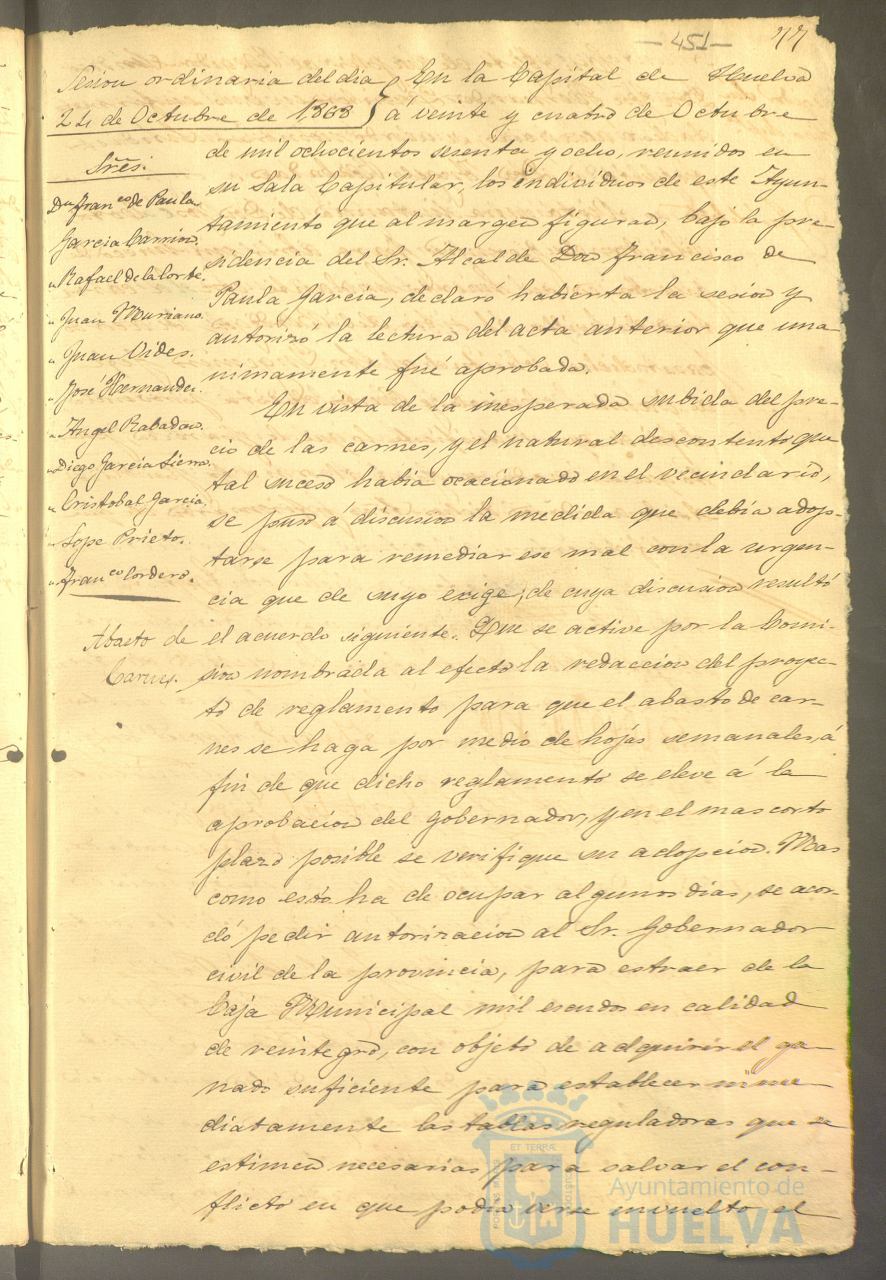 - 451 - 77
Sesion ordinaria del dia
24 de Octubre de 1868
Sres.
Dn Franco de Paula
Garcia Carrion.
" Rafael de la Corte.
" Juan Muriano.
" Juan Vides.
" José Hernandez.
" Angel Rabadan.
" Diego Garcia Sierra.
" Cristobal Garcia.
" Lope Prieto.
" Franco Cordero.
Abasto de
Carnes.
En la Capital de Huelva
á veinte y cuatro de Octubre
de mil ochocientos sesenta y ocho, reunidos en
su Sala Capitular, los individuos de este Ayun-
tamiento que al margen figuran, bajo la pre-
sidencia del Sr. Alcalde Don Francisco de
Paula Garcia, declaró habierta la sesion y
autorizó la lectura del acta anterior que una-
nimamente fué aprobada.
En vista de la inesperada subida del pre-
cio de las carnes, y el natural descontento que
tal suceso habia ocacionado en el vecindario,
se puso á discusion la medida que debia adop-
tarse para remediar ese mal con la urgen-
cia que de suyo exige; de cuya discusion resultó
el acuerdo siguiente. Que se active por la Comi-
sion nombrada al efecto la redaccion del proyec-
to de reglamento para que el abasto de car-
nes se haga por medio de hojas semanales, á
fin de que dicho reglamento se eleve á la
aprobacion del Gobernador, y en el mas corto
plazo posible se verifique su adopcion. Mas
como esto ha de ocupar algunos dias, se acor-
dó pedir autorizacion al Sr. Gobernador
civil de la provincia, para estraer de la
Caja Municipal mil escudos en calidad
de reintegro, con objeto de adquirir el ga-
nado suficiente para establecer inme-
diatamente las tablas reguladoras que se
estimen necesarias para salvar el con-
flicto en que podia verse envuelto el
ET TERRÆ
Ayuntamiento de
HUELVA